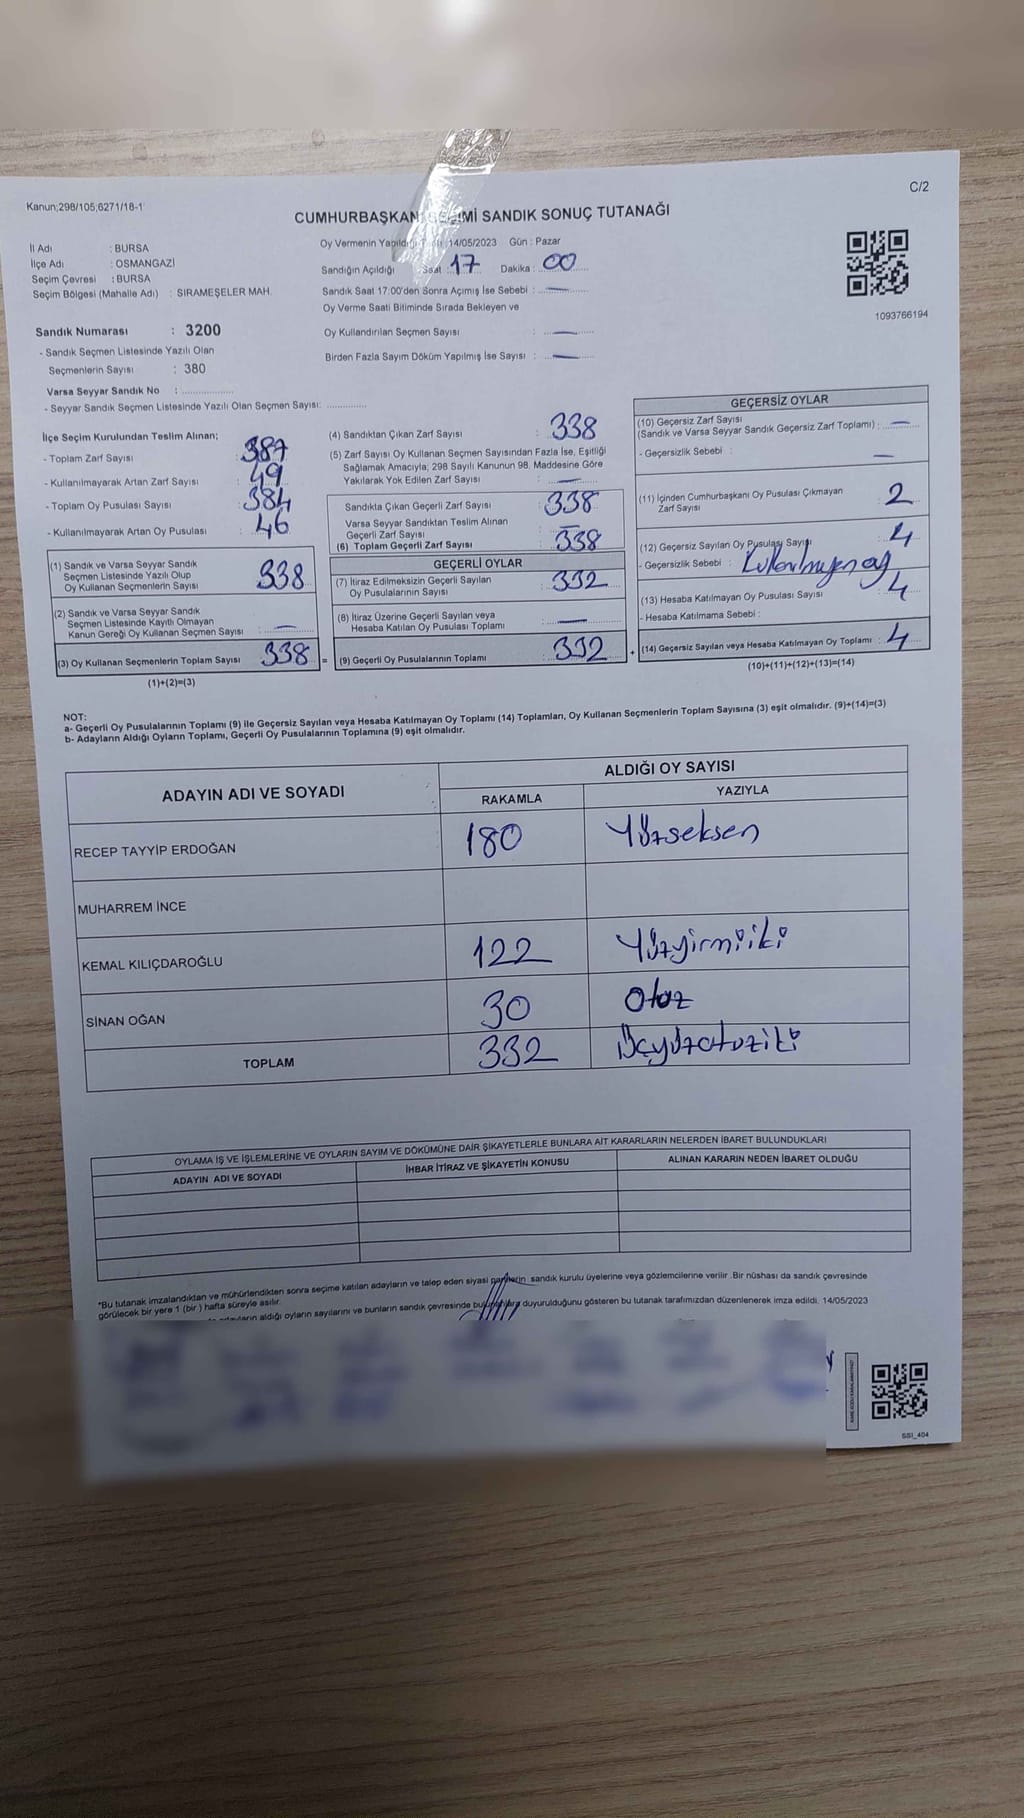 C/2
Kanun;298/105;6271/18-1
CUMHURBAŞKANI SEÇİMİ SANDIK SONUÇ TUTANAĞI
İl Adı : BURSA
İlçe Adı : OSMANGAZİ
Seçim Çevresi : BURSA
Seçim Bölgesi (Mahalle Adı) : SIRAMEŞELER MAH.
Oy Vermenin Yapıldığı 14/05/2023 Gün : Pazar
Sandığın Açıldığı Saat : 17 Dakika : 00
Sandık Saat 17:00'den Sonra Açımış İse Sebebi : —
Oy Verme Saati Bitiminde Sırada Bekleyen ve
Oy Kullandırılan Seçmen Sayısı : —
Birden Fazla Sayım Döküm Yapılmış İse Sayısı : —
1093766194
Sandık Numarası : 3200
- Sandık Seçmen Listesinde Yazılı Olan
Seçmenlerin Sayısı : 380
Varsa Seyyar Sandık No :
- Seyyar Sandık Seçmen Listesinde Yazılı Olan Seçmen Sayısı:
İlçe Seçim Kurulundan Teslim Alınan;
- Toplam Zarf Sayısı : 387
- Kullanılmayarak Artan Zarf Sayısı : 49
- Toplam Oy Pusulası Sayısı : 384
- Kullanılmayarak Artan Oy Pusulası : 46
(1) Sandık ve Varsa Seyyar Sandık
Seçmen Listesinde Yazılı Olup
Oy Kullanan Seçmenlerin Sayısı : 338
(2) Sandık ve Varsa Seyyar Sandık
Seçmen Listesinde Kayıtlı Olmayan
Kanun Gereği Oy Kullanan Seçmen Sayısı : —
(3) Oy Kullanan Seçmenlerin Toplam Sayısı 338 =
(1)+(2)=(3)
(4) Sandıktan Çıkan Zarf Sayısı : 338
(5) Zarf Sayısı Oy Kullanan Seçmen Sayısından Fazla İse, Eşitliği
Sağlamak Amacıyla; 298 Sayılı Kanunun 98. Maddesine Göre
Yakılarak Yok Edilen Zarf Sayısı : —
Sandıkta Çıkan Geçerli Zarf Sayısı : 338
Varsa Seyyar Sandıktan Teslim Alınan
Geçerli Zarf Sayısı : —
(6) Toplam Geçerli Zarf Sayısı : 338
GEÇERLİ OYLAR
(7) İtiraz Edilmeksizin Geçerli Sayılan
Oy Pusulalarının Sayısı : 332
(8) İtiraz Üzerine Geçerli Sayılan veya
Hesaba Katılan Oy Pusulası Toplamı : —
(9) Geçerli Oy Pusulalarının Toplamı : 332 +
GEÇERSİZ OYLAR
(10) Geçersiz Zarf Sayısı
(Sandık ve Varsa Seyyar Sandık Geçersiz Zarf Toplamı) : —
- Geçersizlik Sebebi : —
(11) İçinden Cumhurbaşkanı Oy Pusulası Çıkmayan
Zarf Sayısı : 2
(12) Geçersiz Sayılan Oy Pusulası Sayısı : 4
- Geçersizlik Sebebi : Kullanılmayan oy
(13) Hesaba Katılmayan Oy Pusulası Sayısı : 4
- Hesaba Katılmama Sebebi :
(14) Geçersiz Sayılan veya Hesaba Katılmayan Oy Toplamı : 4
(10)+(11)+(12)+(13)=(14)
NOT:
a- Geçerli Oy Pusulalarının Toplamı (9) ile Geçersiz Sayılan veya Hesaba Katılmayan Oy Toplamı (14) Toplamları, Oy Kullanan Seçmenlerin Toplam Sayısına (3) eşit olmalıdır. (9)+(14)=(3)
b- Adayların Aldığı Oyların Toplamı, Geçerli Oy Pusulalarının Toplamına (9) eşit olmalıdır.
ADAYIN ADI VE SOYADI ALDIĞI OY SAYISI
RAKAMLA YAZIYLA
RECEP TAYYİP ERDOĞAN 180 Yüzseksen
MUHARREM İNCE
KEMAL KILIÇDAROĞLU 122 Yüzyirmiiki
SİNAN OĞAN 30 Otuz
TOPLAM 332 Üçyüzotuziki
OYLAMA İŞ VE İŞLEMLERİNE VE OYLARIN SAYIM VE DÖKÜMÜNE DAİR ŞİKAYETLERLE BUNLARA AİT KARARLARIN NELERDEN İBARET BULUNDUKLARI
ADAYIN ADI VE SOYADI İHBAR İTİRAZ VE ŞİKAYETİN KONUSU ALINAN KARARIN NEDEN İBARET OLDUĞU
*Bu tutanak imzalandıktan ve mühürlendikten sonra seçime katılan adayların ve talep eden siyasi partilerin sandık kurulu üyelerine veya gözlemcilerine verilir .Bir nüshası da sandık çevresinde
görülecek bir yere 1 (bir ) hafta süreyle asılır.
adayların aldığı oyların sayılarını ve bunların sandık çevresinde bulunanlara duyurulduğunu gösteren bu tutanak tarafımızdan düzenlenerek imza edildi. 14/05/2023
SSI_404